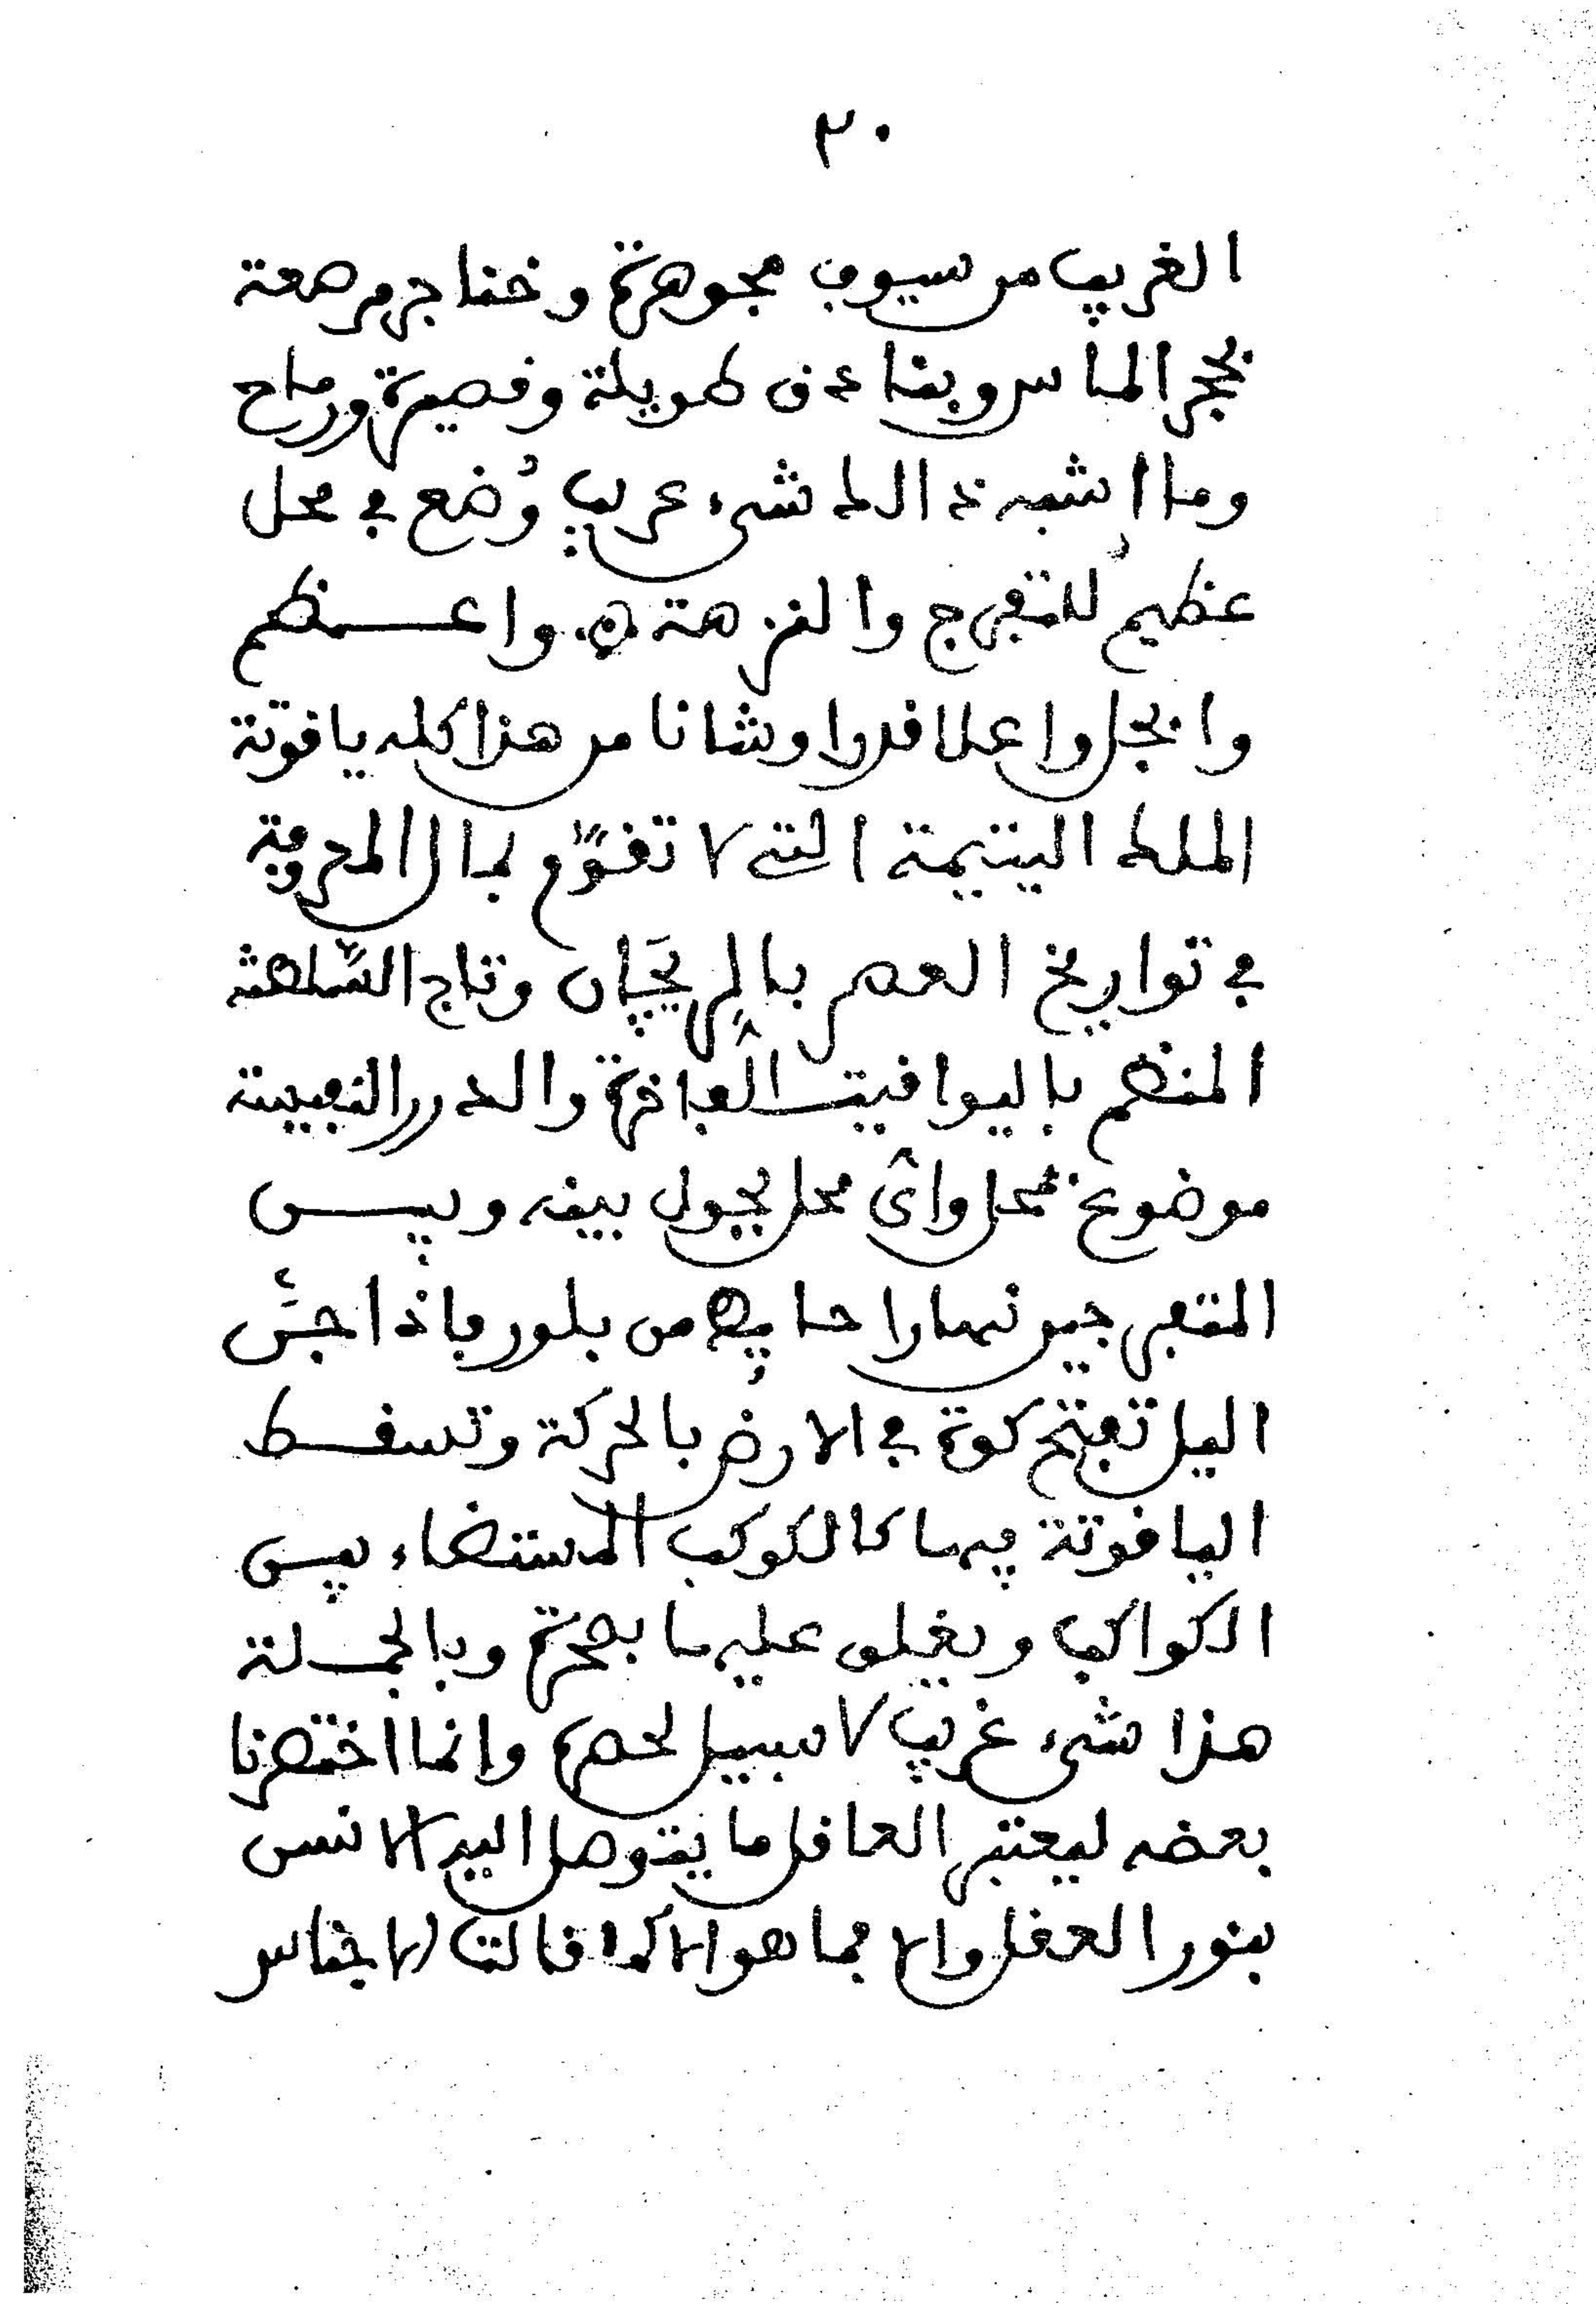 ٣٠
الغريب من سيوف مجوهرة وخناجر مرصعة
بحجر الماس وبنادق طويلة وقصيرة ورماح
وما اشبه ذالك شيء غريب وُضع في محل
عظيم للتفرج والنزهة واعظم
وابجل واعلا قدرا وشانا من هذا كله ياقوتة
الملك اليتيمة التي لا تقوّم بمال المعروفة
في تواريخ العصر وتاج السّلطنة
المنظم باليواقيت الفاخرة والدرر النفيسة
موضوع بمحل واي محل يحول بينه وبين
المتفرجين نهارا حايط من بلور فاذا جنّ
اليل تفتح كوة في الارض بالحركة وتسقط
الياقوتة فيها كالكوكب المستضاء بين
الكواكب ويغلق عليها بصخرة وبالجملة
هذا شيء غريب لا سبيل لحصره وانما اختصرنا
بعضه ليعتبر العاقل ما يتوصل اليه الانس
بنور العقل والا فما هو الا كما قالت الاجناس